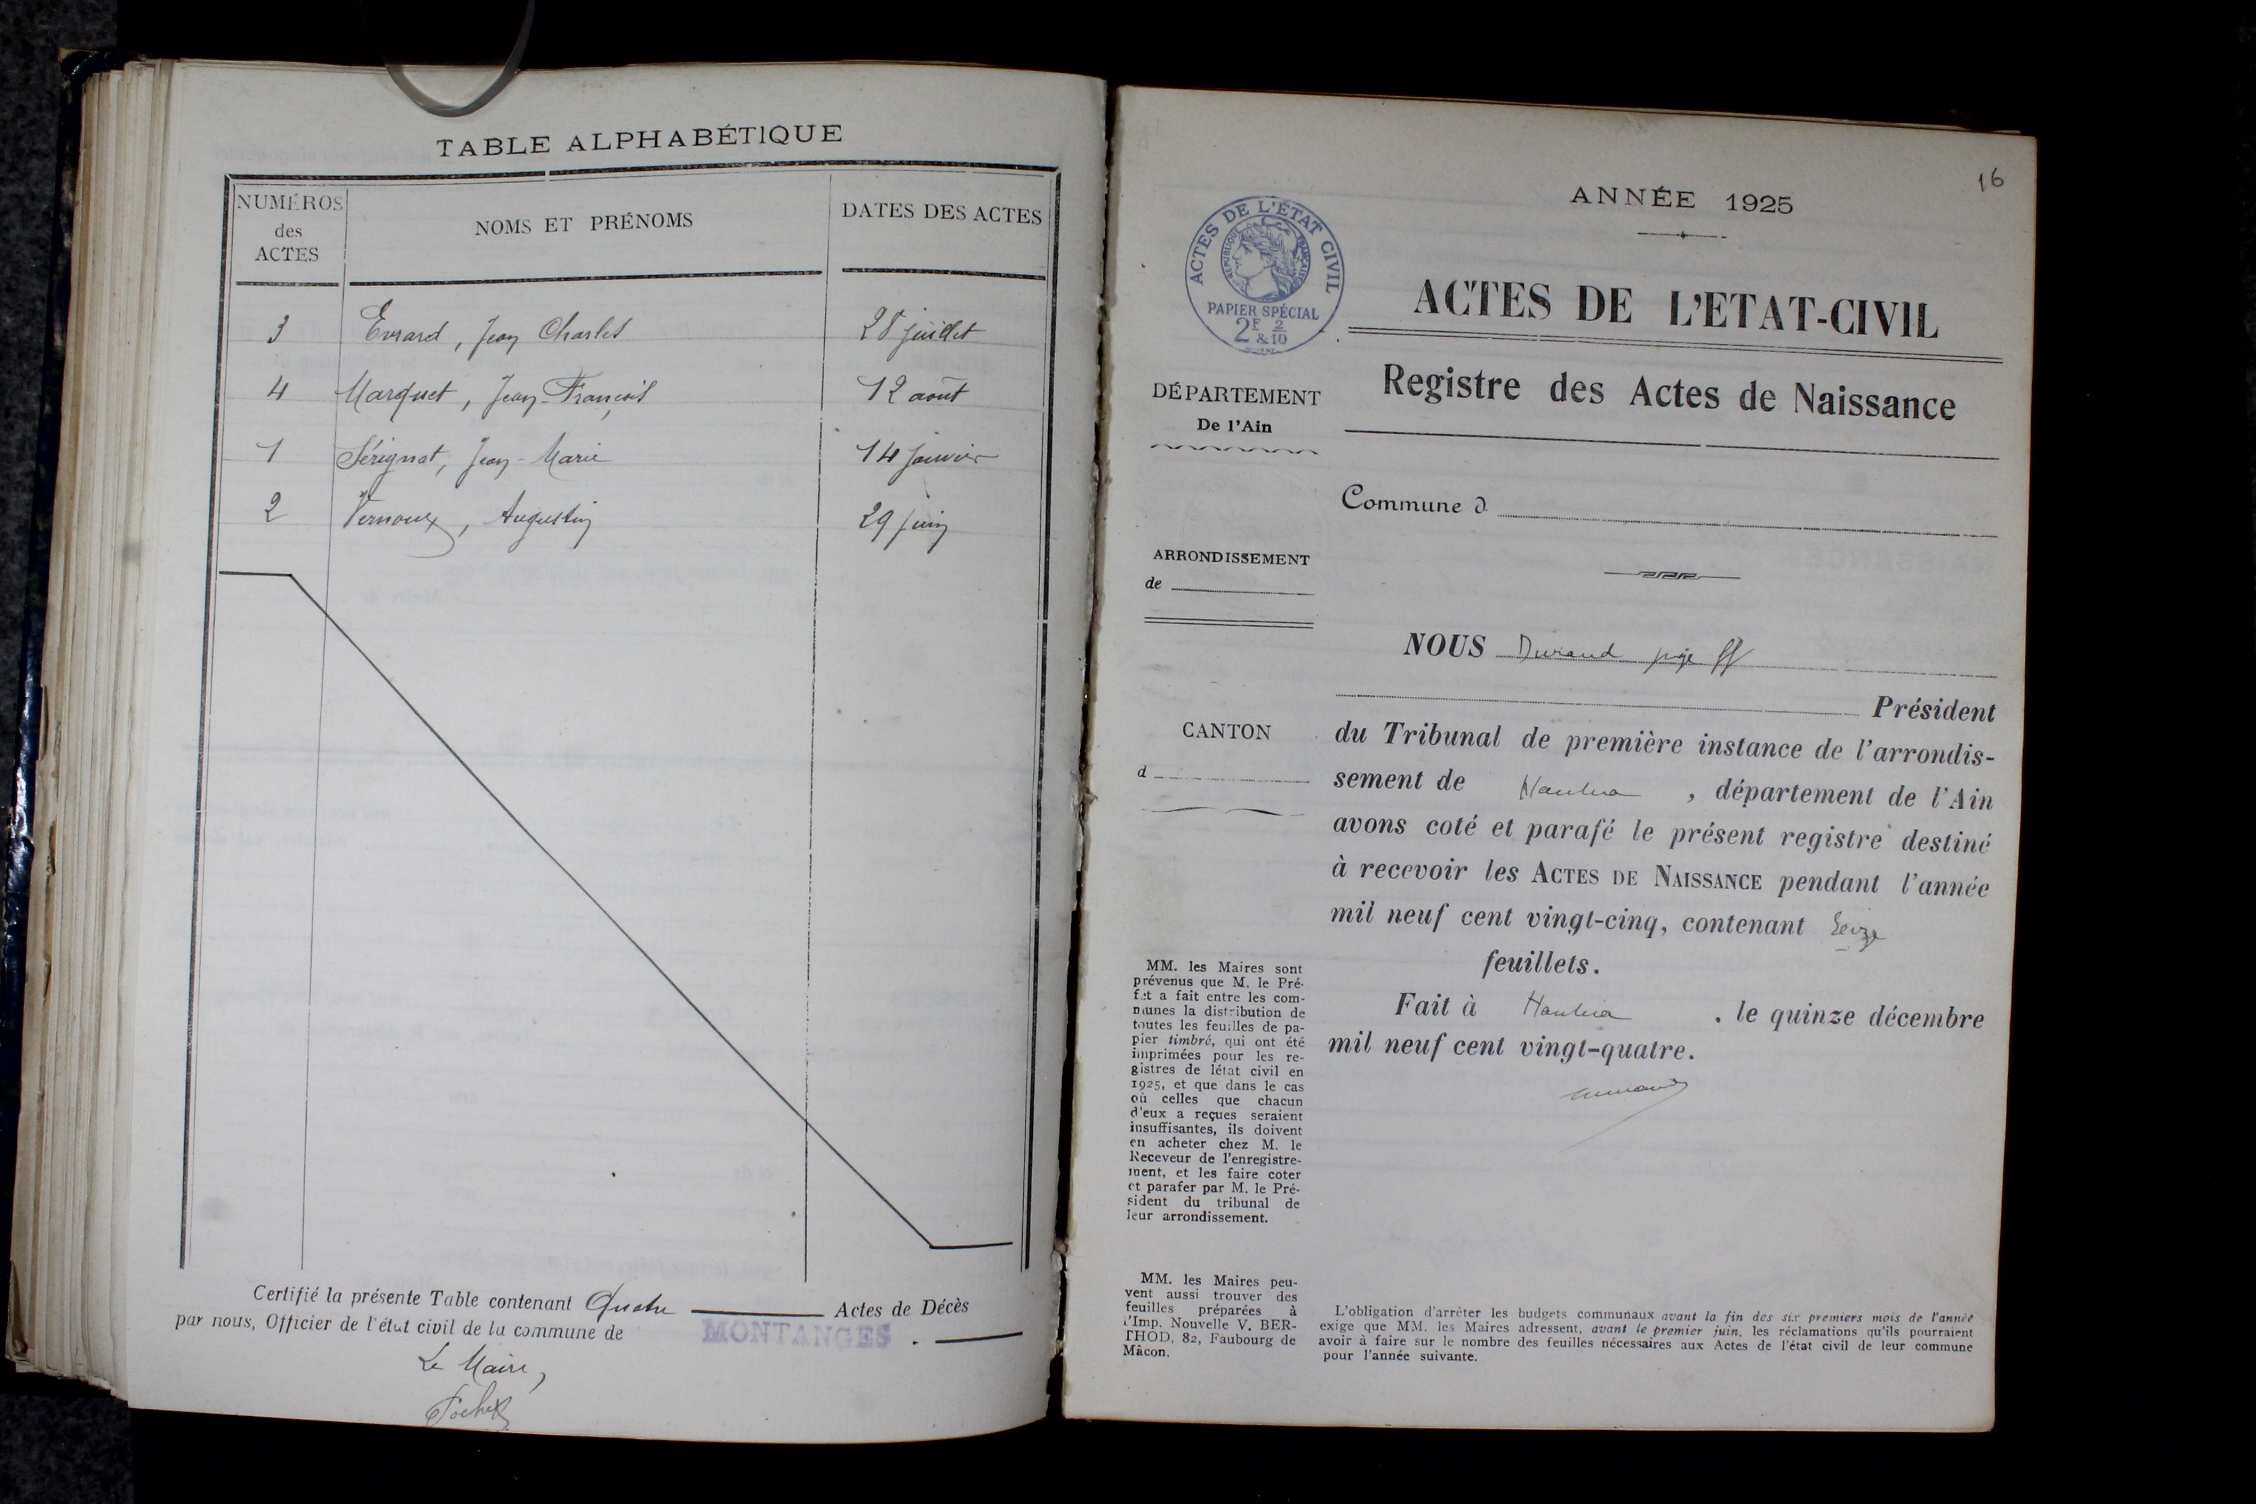 TABLE ALPHABÉTIQUE
NUMÉROS
des
ACTES
NOMS ET PRÉNOMS
DATES DES ACTES
3 Evrard, Jean Charles 28 juillet
4 Marquet, Jean-François 12 août
1 Sérignat, Jean-Marie 14 janvier
2 Vernoux, Augustin 29 juin
Certifié la présente Table contenant Quatre Actes de Décès
par nous, Officier de l'état civil de la commune de MONTANGES.
Le Maire,
16
ANNÉE 1925
ACTES DE L'ÉTAT CIVIL
RÉPUBLIQUE FRANÇAISE
PAPIER SPÉCIAL
2F & 2/10
ACTES DE L'ETAT-CIVIL
Registre des Actes de Naissance
DÉPARTEMENT
De l'Ain
Commune d
ARRONDISSEMENT
de
NOUS Durand juge ff
Président
CANTON
d
du Tribunal de première instance de l'arrondis-
sement de Nantua, département de l'Ain
avons coté et parafé le présent registre destiné
à recevoir les ACTES DE NAISSANCE pendant l'année
mil neuf cent vingt-cinq, contenant Seize
feuillets.
Fait à Nantua, le quinze décembre
mil neuf cent vingt-quatre.
Durand
MM. les Maires sont
prévenus que M. le Pré-
fet a fait entre les com-
munes la distribution de
toutes les feuilles de pa-
pier timbré, qui ont été
imprimées pour les re-
gistres de létat civil en
1925, et que dans le cas
où celles que chacun
d'eux a reçues seraient
insuffisantes, ils doivent
en acheter chez M. le
Receveur de l'enregistre-
ment, et les faire coter
et parafer par M. le Pré-
sident du tribunal de
leur arrondissement.
MM. les Maires peu-
vent aussi trouver des
feuilles préparées à
l'Imp. Nouvelle V. BER-
THOD, 82, Faubourg de
Mâcon.
L'obligation d'arrêter les budgets communaux avant la fin des six premiers mois de l'année
exige que MM. les Maires adressent, avant le premier juin, les réclamations qu'ils pourraient
avoir à faire sur le nombre des feuilles nécessaires aux Actes de l'état civil de leur commune
pour l'année suivante.